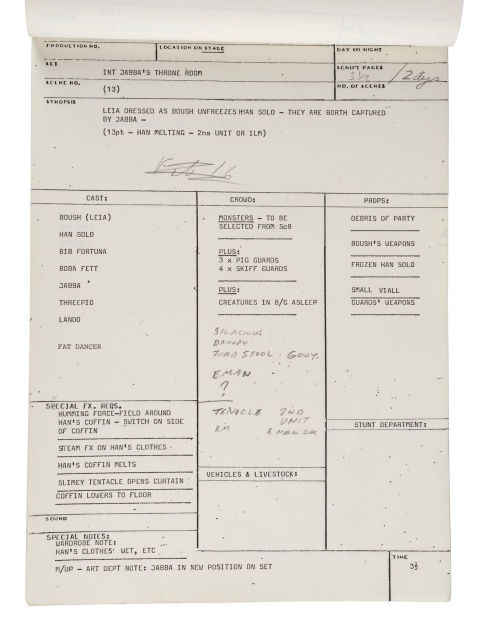 PRODUCTION NO.
LOCATION OR STAGE
DAY OR NIGHT
SET
INT JABBA'S THRONE ROOM
SCRIPT PAGES
2 days
SCENE NO.
(13)
NO. OF SCENES
SYNOPSIS
LEIA DRESSED AS BOUSH UNFREEZES HAN SOLO - THEY ARE BORTH CAPTURED
BY JABBA -
(13pt - HAN MELTING - 2nd UNIT OR ILM)
CAST:
BOUSH (LEIA)
HAN SOLO
BIB FORTUNA
BOBA FETT
JABBA
THREEPIO
LANDO
FAT DANCER
CROWD:
MONSTERS - TO BE
SELECTED FROM SoB
PLUS:
3 x PIG GUARDS
4 x SKIFF GUARDS
PLUS:
CREATURES IN B/G ASLEEP
SILACIOUS
DROOPY
TOAD STOOL - GOOY.
EMAN
?
TENACLE 2ND
UNIT
PROPS:
DEBRIS OF PARTY
BOUSH'S WEAPONS
FROZEN HAN SOLO
SMALL VIALL
GUARDS' WEAPONS
SPECIAL FX. REQS.
HUMMING FORCE-FIELD AROUND
HAN'S COFFIN - SWITCH ON SIDE
OF COFFIN
STEAM FX ON HAN'S CLOTHES -
HAN'S COFFIN MELTS
SLIMEY TENTACLE OPENS CURTAIN
COFFIN LOWERS TO FLOOR
VEHICLES & LIVESTOCK:
STUNT DEPARTMENT:
SOUND
SPECIAL NOTES:
WARDROBE NOTE:
HAN'S CLOTHES' WET, ETC
M/UP - ART DEPT NOTE: JABBA IN NEW POSITION ON SET
TIME
3½